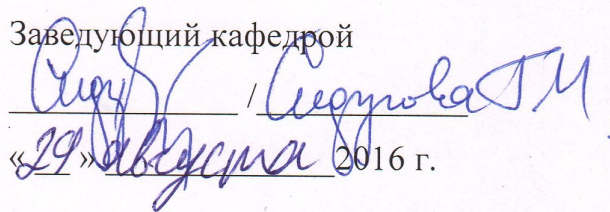 Заведующий кафедрой
/ Сидурова Г М
«29» августа 2016 г.